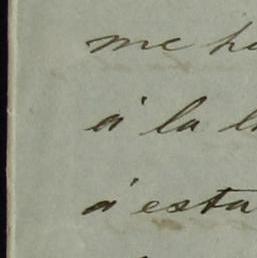 me
á la
á esta